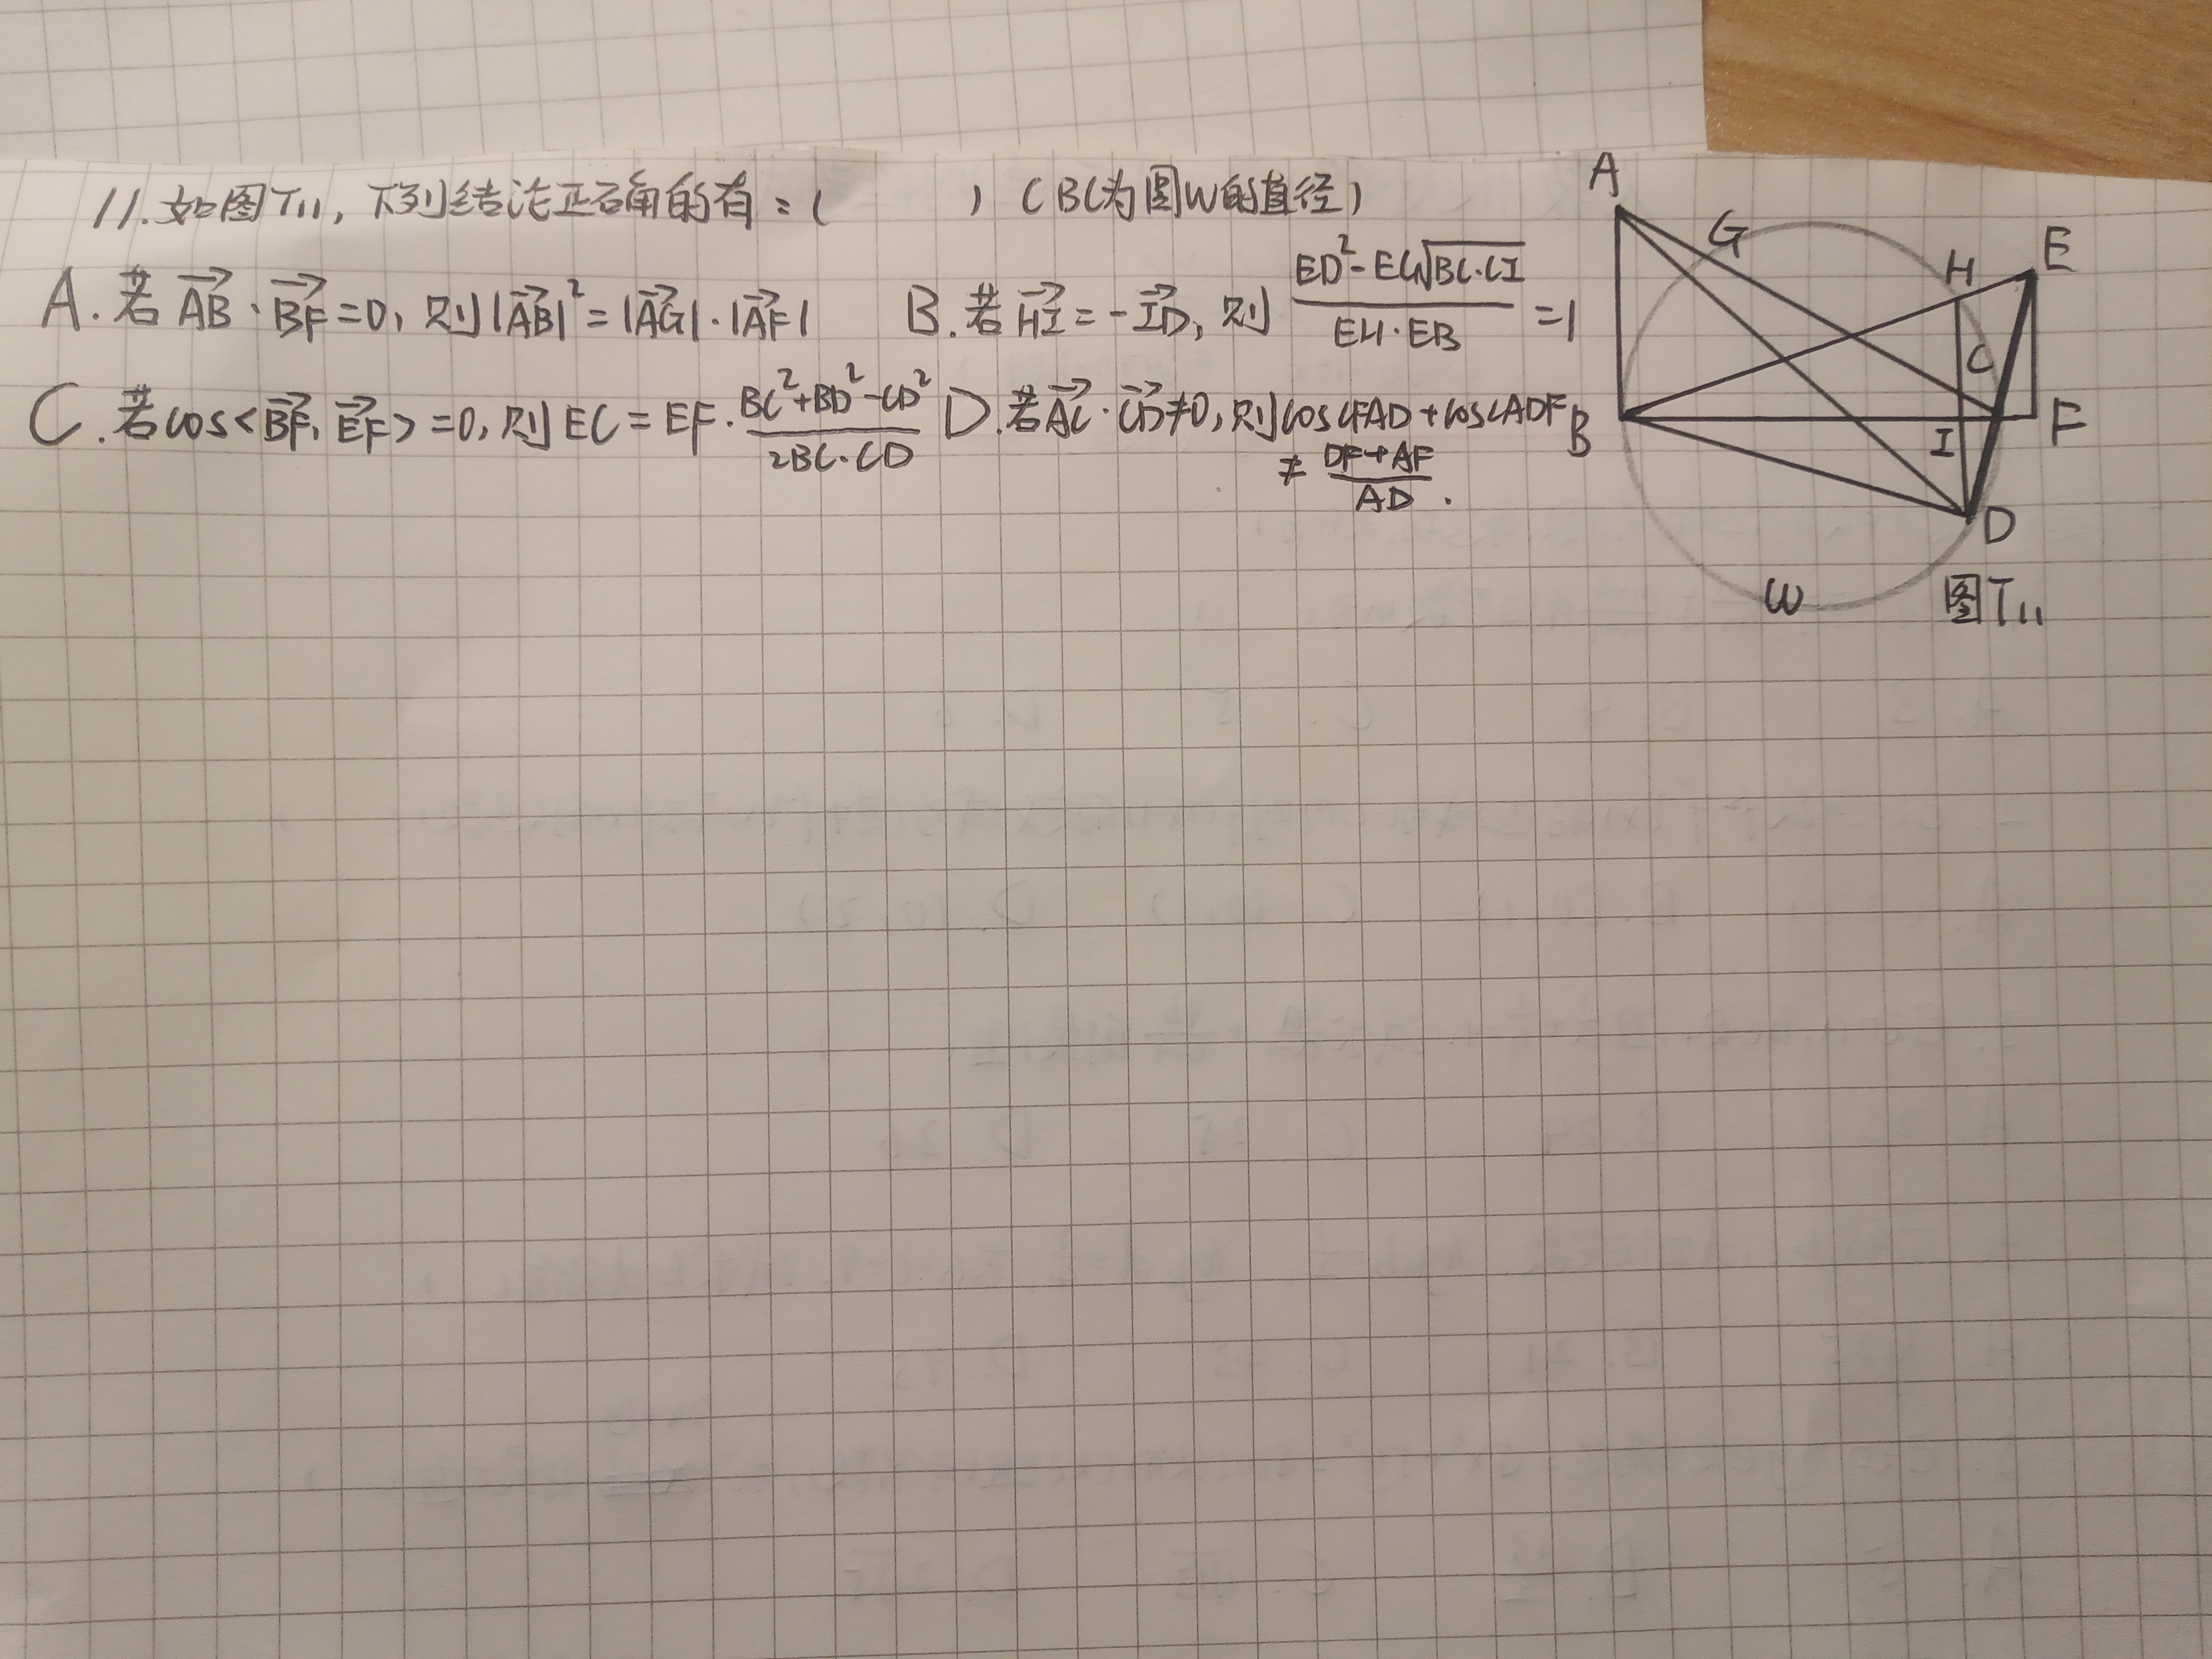 11.如图T₁₁,下列结论正确的有:( )(BC为圆W的直径)
A.若 $\overrightarrow{AB}\cdot\overrightarrow{BF}=0$,则 $|\overrightarrow{AB}|^2=|\overrightarrow{AG}|\cdot|\overrightarrow{AF}|$ B.若 $\overrightarrow{HI}=-\overrightarrow{ID}$,则 $\frac{ED^2-EC\sqrt{BC\cdot CI}}{EH\cdot EB}=1$
C.若cos<$\overrightarrow{BF}$,$\overrightarrow{EF}$>=0,则 $EC=EF\cdot\frac{BC^2+BD^2-CD^2}{2BC\cdot CD}$ D.若 $\overrightarrow{AC}\cdot\overrightarrow{CD}\neq0$,则cos∠FAD+cos∠ADF
$\neq\frac{DF+AF}{AD}$.
A
G
H
E
C
B
I
F
D
W
图T₁₁